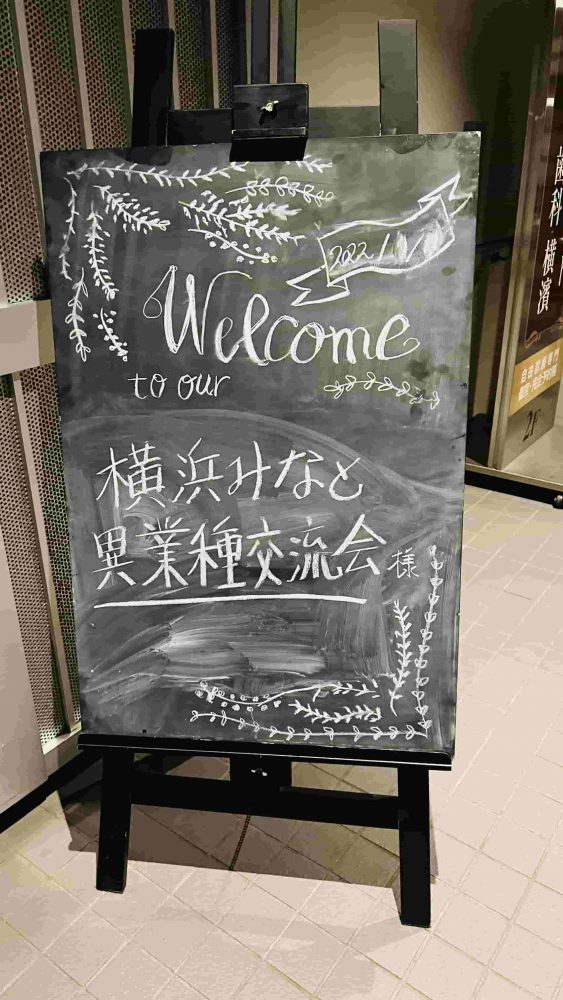 2022/
Welcome
to our
横浜みなと
異業種交流会様
歯科横濱
自由診療専門
2F